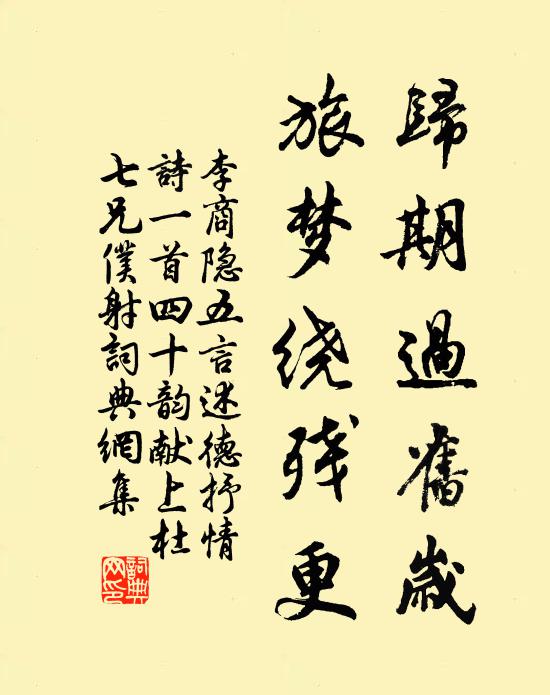 歸期過舊歲
旅梦绕残更
李商隐五言述德抒情
詩一首四十韵献上杜
七兄僕射詞典網集
詞典
网印